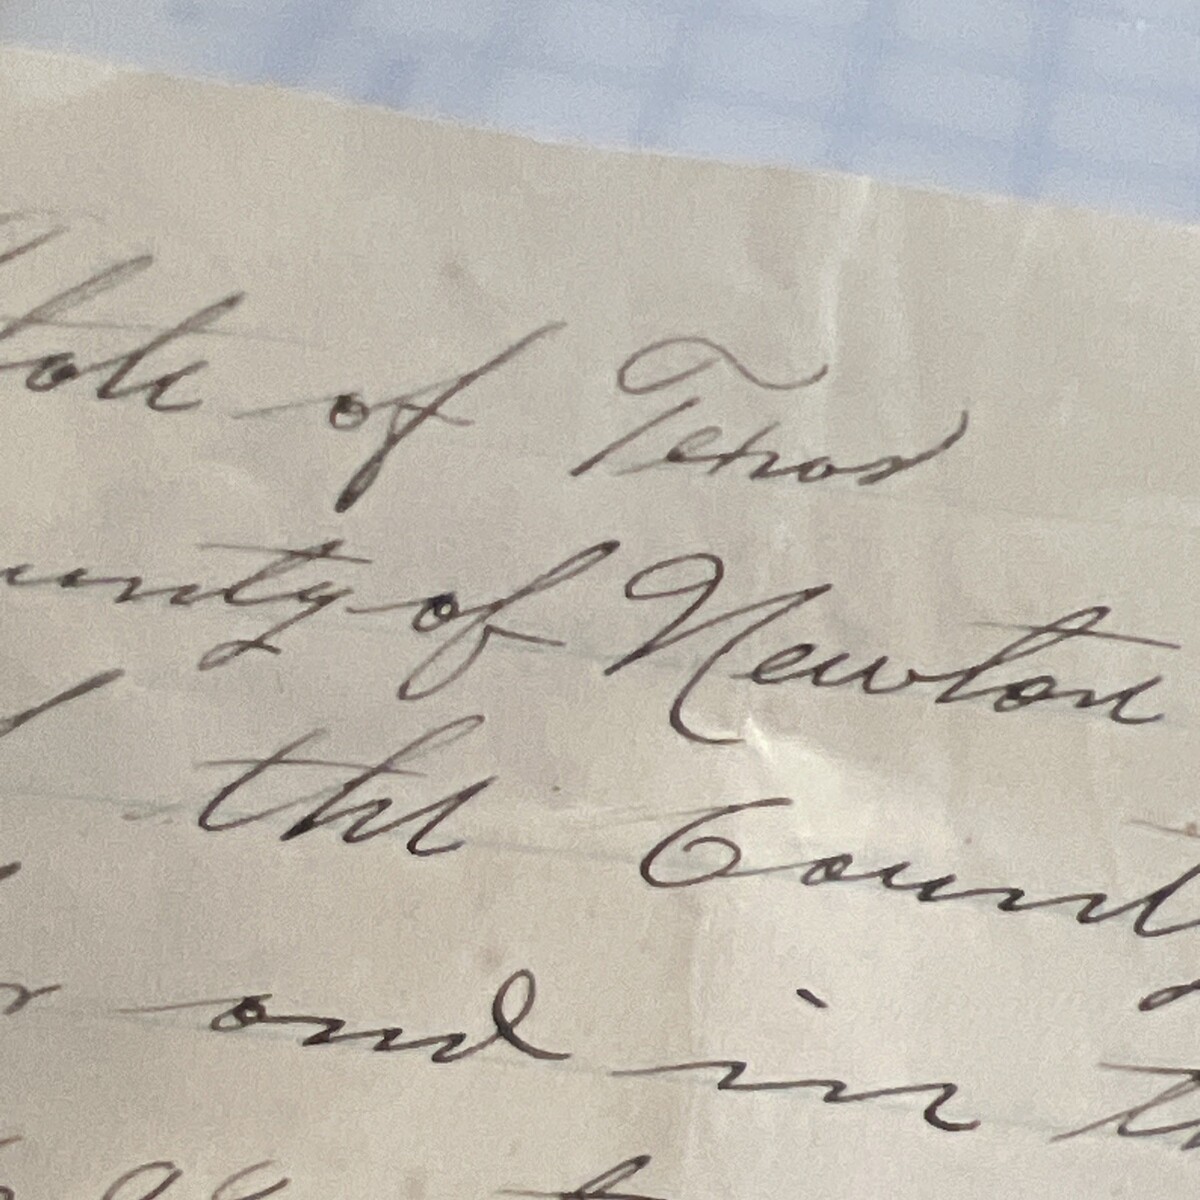 State of Texas
County of Newton
the County
and in